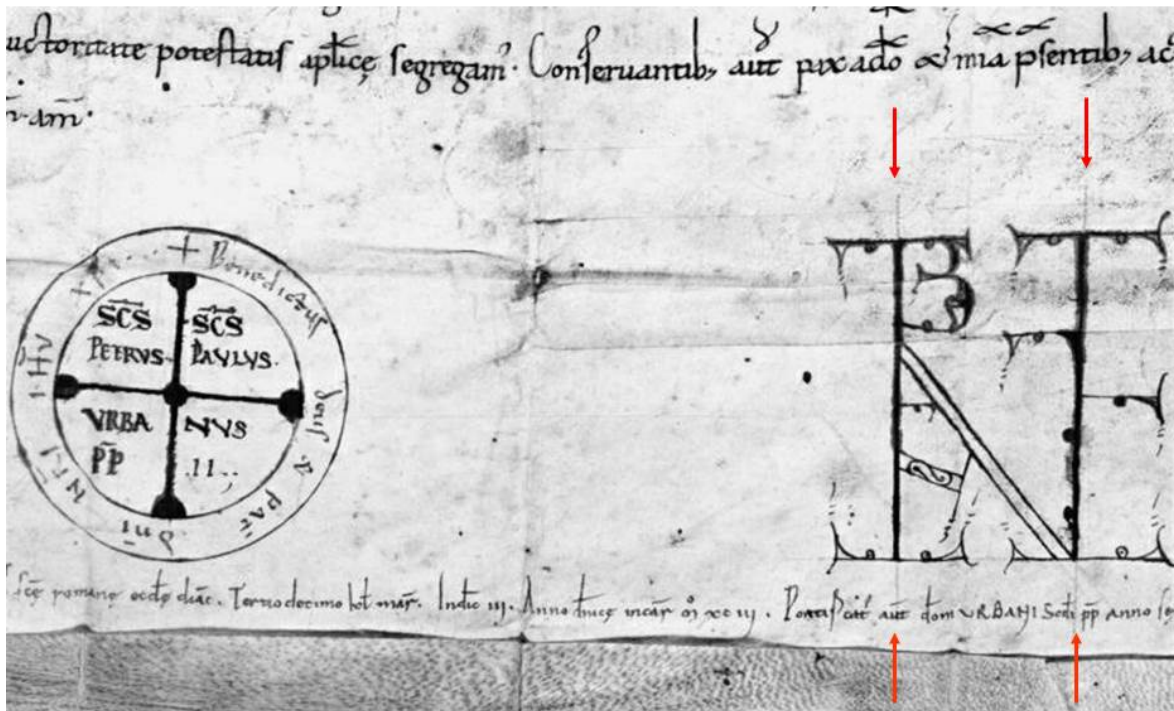 uctoritate potestatis aplice segregam̄. Conseruantib; aūt pax a dō & mīa p̄sentib; ac
am̄.
+ Benedictus deus & pat dn̄i NRI IHV XPI
SCS SCS
PETRVS PAVLVS.
VRBA NVS
P̄P .II.
sc̄e romane eccle diac. Tertio decimo kl mar. Indic III. Anno dn̄ice incar xc III. Pontificat aūt dom VRBANI Scdi p̄p anno